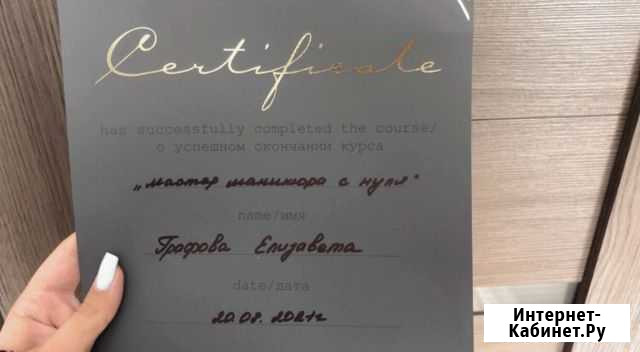 Certificate
has successfully completed the course/
о успешном окончании курса
„мастер маникюра с нуля"
name/имя
Графова Елизавета
date/дата
20.08.2021г
Интернет-
Кабинет.Ру